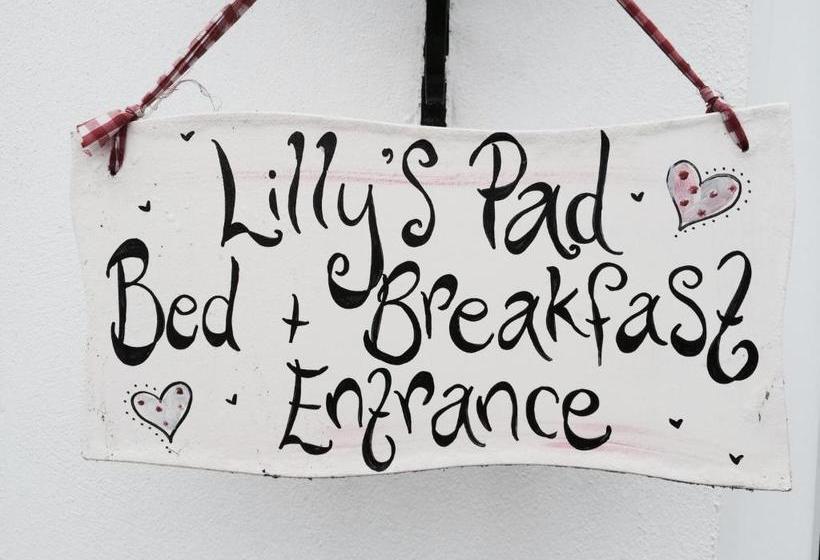 Lilly's Pad
Bed + Breakfast
Entrance